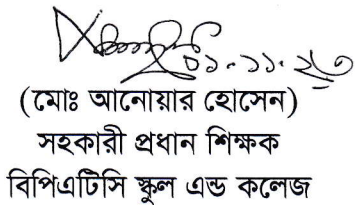 ০১-১১-২৩
(মোঃ আনোয়ার হোসেন)
সহকারী প্রধান শিক্ষক
বিপিএটিসি স্কুল এন্ড কলেজ